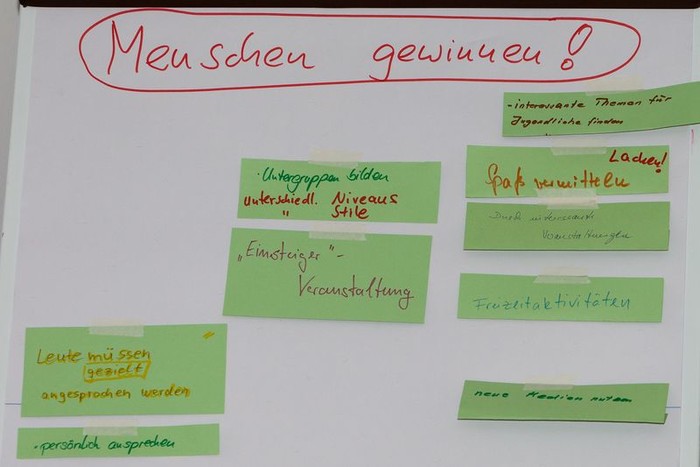 Menschen gewinnen!
- interessante Themen für
Jugendliche finden
Lachen!
Spaß vermitteln
Durch interessante
Veranstaltungen
Freizeitaktivitäten
neue Medien nutzen
· Untergruppen bilden
unterschiedl. Niveaus
" Stile
„Einsteiger"-
Veranstaltung
Leute müssen
gezielt
angesprochen werden
· persönlich ansprechen